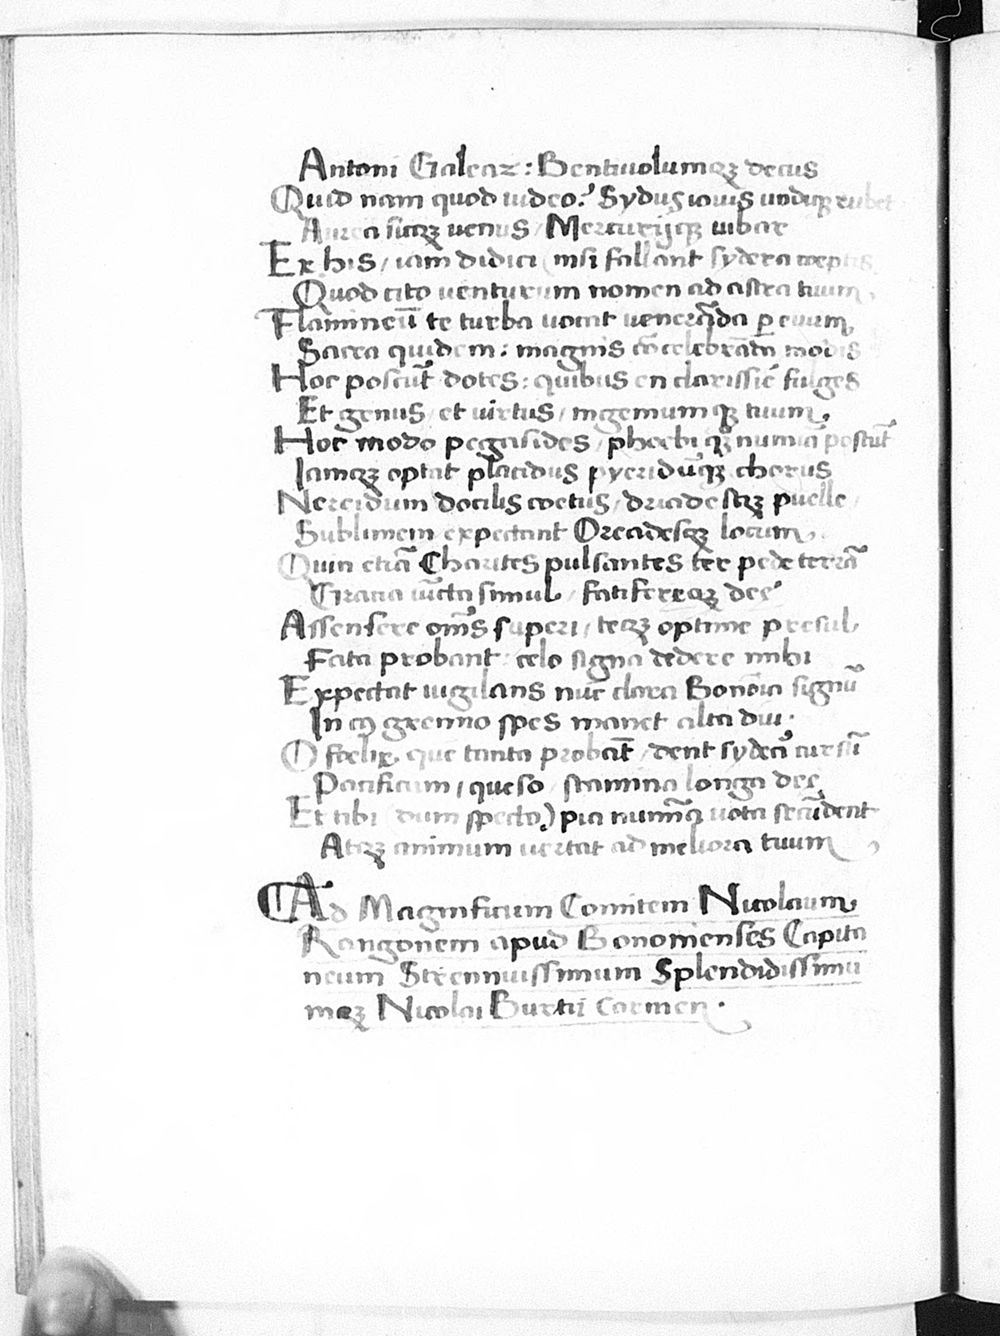 Antoni Galeaz: Bentiuolumqʒ decus
Quid nam quod uideo? Sydus iouis undiqʒ rubet
Aurea sicqʒ uenus / Mercurijqʒ iubar
Ex his, iam didici / nisi fallant sydera coeptis
Quod cito uenturum nomen ad astra tuum,
Flamineū te turba uocat ueneranda p euum,
Sacra quidem: magnis cōcelebrāda modis
Hoc poscūt dotes: quibus en clarissie fulges
Et genus, et uirtus, ingenium qʒ tuum,
Hoc modo pegasides, phoebi qʒ numia poscūt
Iamqʒ optat placidus pyeridūqʒ chorus
Nereidum docilis coetus, driadesqʒ puelle,
Sublimem expectant Oreadesqʒ locum,
Quin etiā Charites pulsantes ter pede terrā
Gratia iūcta simul, fatiferęqʒ deę
Assensere om̄s superi, teqʒ optime presul
Fata probant: celo signa dedere mihi
Expectat uigilans nūc clara Bonōia signū
In cꝯ gremio spes manet alta diu.
O foelix, que tanta probāt, dent sydera cursū
Pacificum, queso, stamina longa deę
Et tibi (dum specto) pia numina uota secūdent
Atqʒ animum uertat ad meliora tuum,
Ad Magnificum Comitem Nicolaum,
Rangonem apud Bononienses Capita
neum Strennuissimum Splendidissimū
mqʒ Nicolai Burtii Carmen.